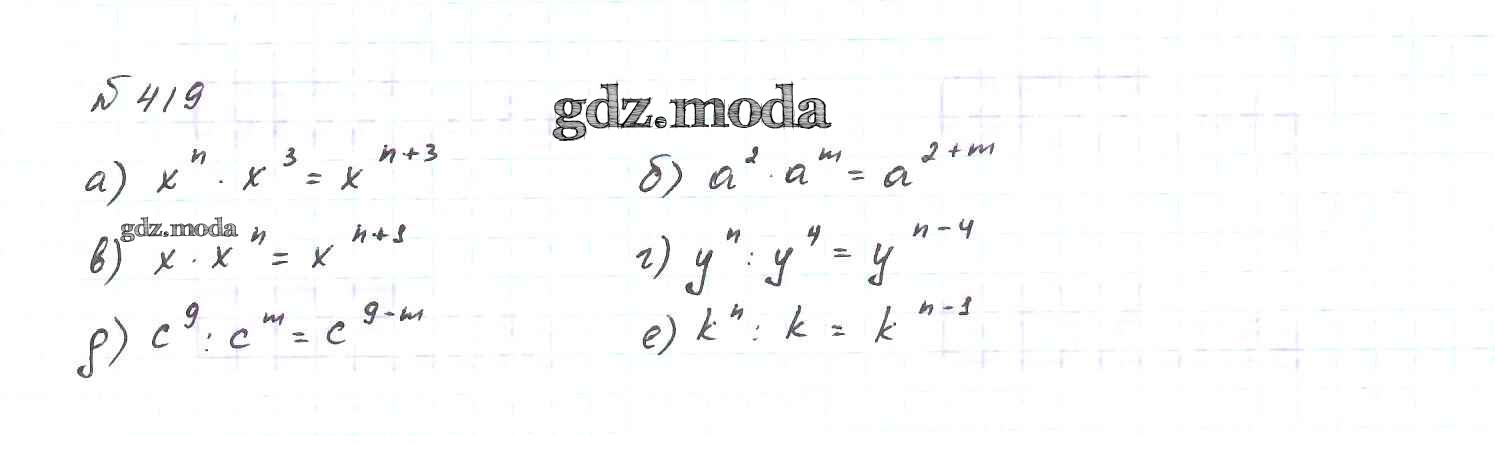 № 419
gdz.moda
а) xⁿ · x³ = xⁿ⁺³ б) a² · aᵐ = a²⁺ᵐ
gdz.moda
в) x · xⁿ = xⁿ⁺¹ г) yⁿ : y⁴ = yⁿ⁻⁴
д) c⁹ : cᵐ = c⁹⁻ᵐ е) kⁿ : k = kⁿ⁻¹